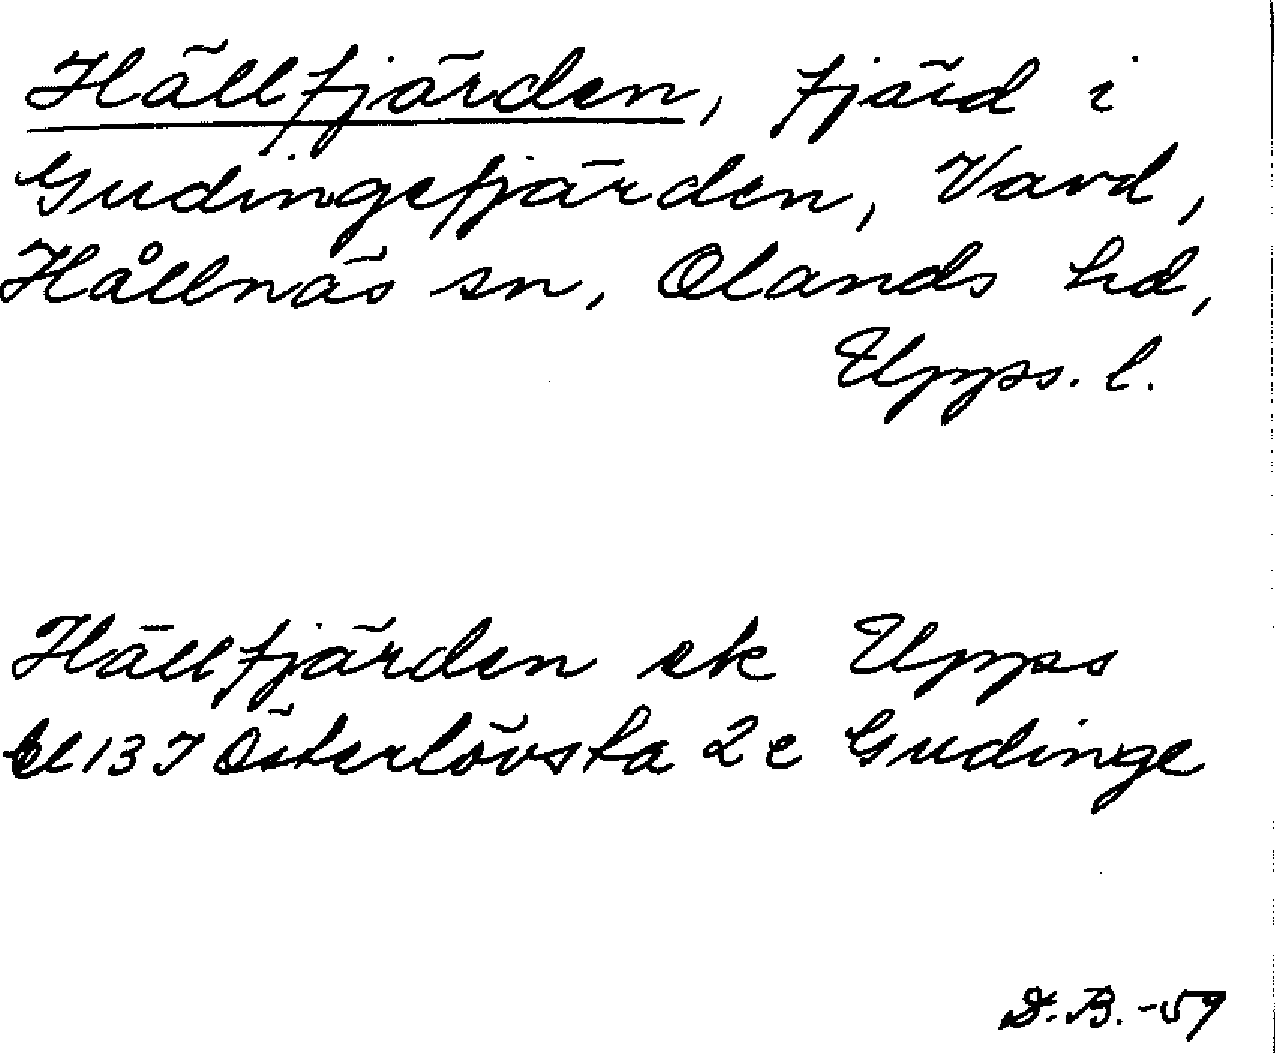 Hällfjärden, fjärd i
Gudingefjärden, Vavd,
Hållnäs sn, Olands hd,
Upps. l.
Hällfjärden ek Upps
bl 13 I Österlövsta 2e Gudinge
D.B. -59